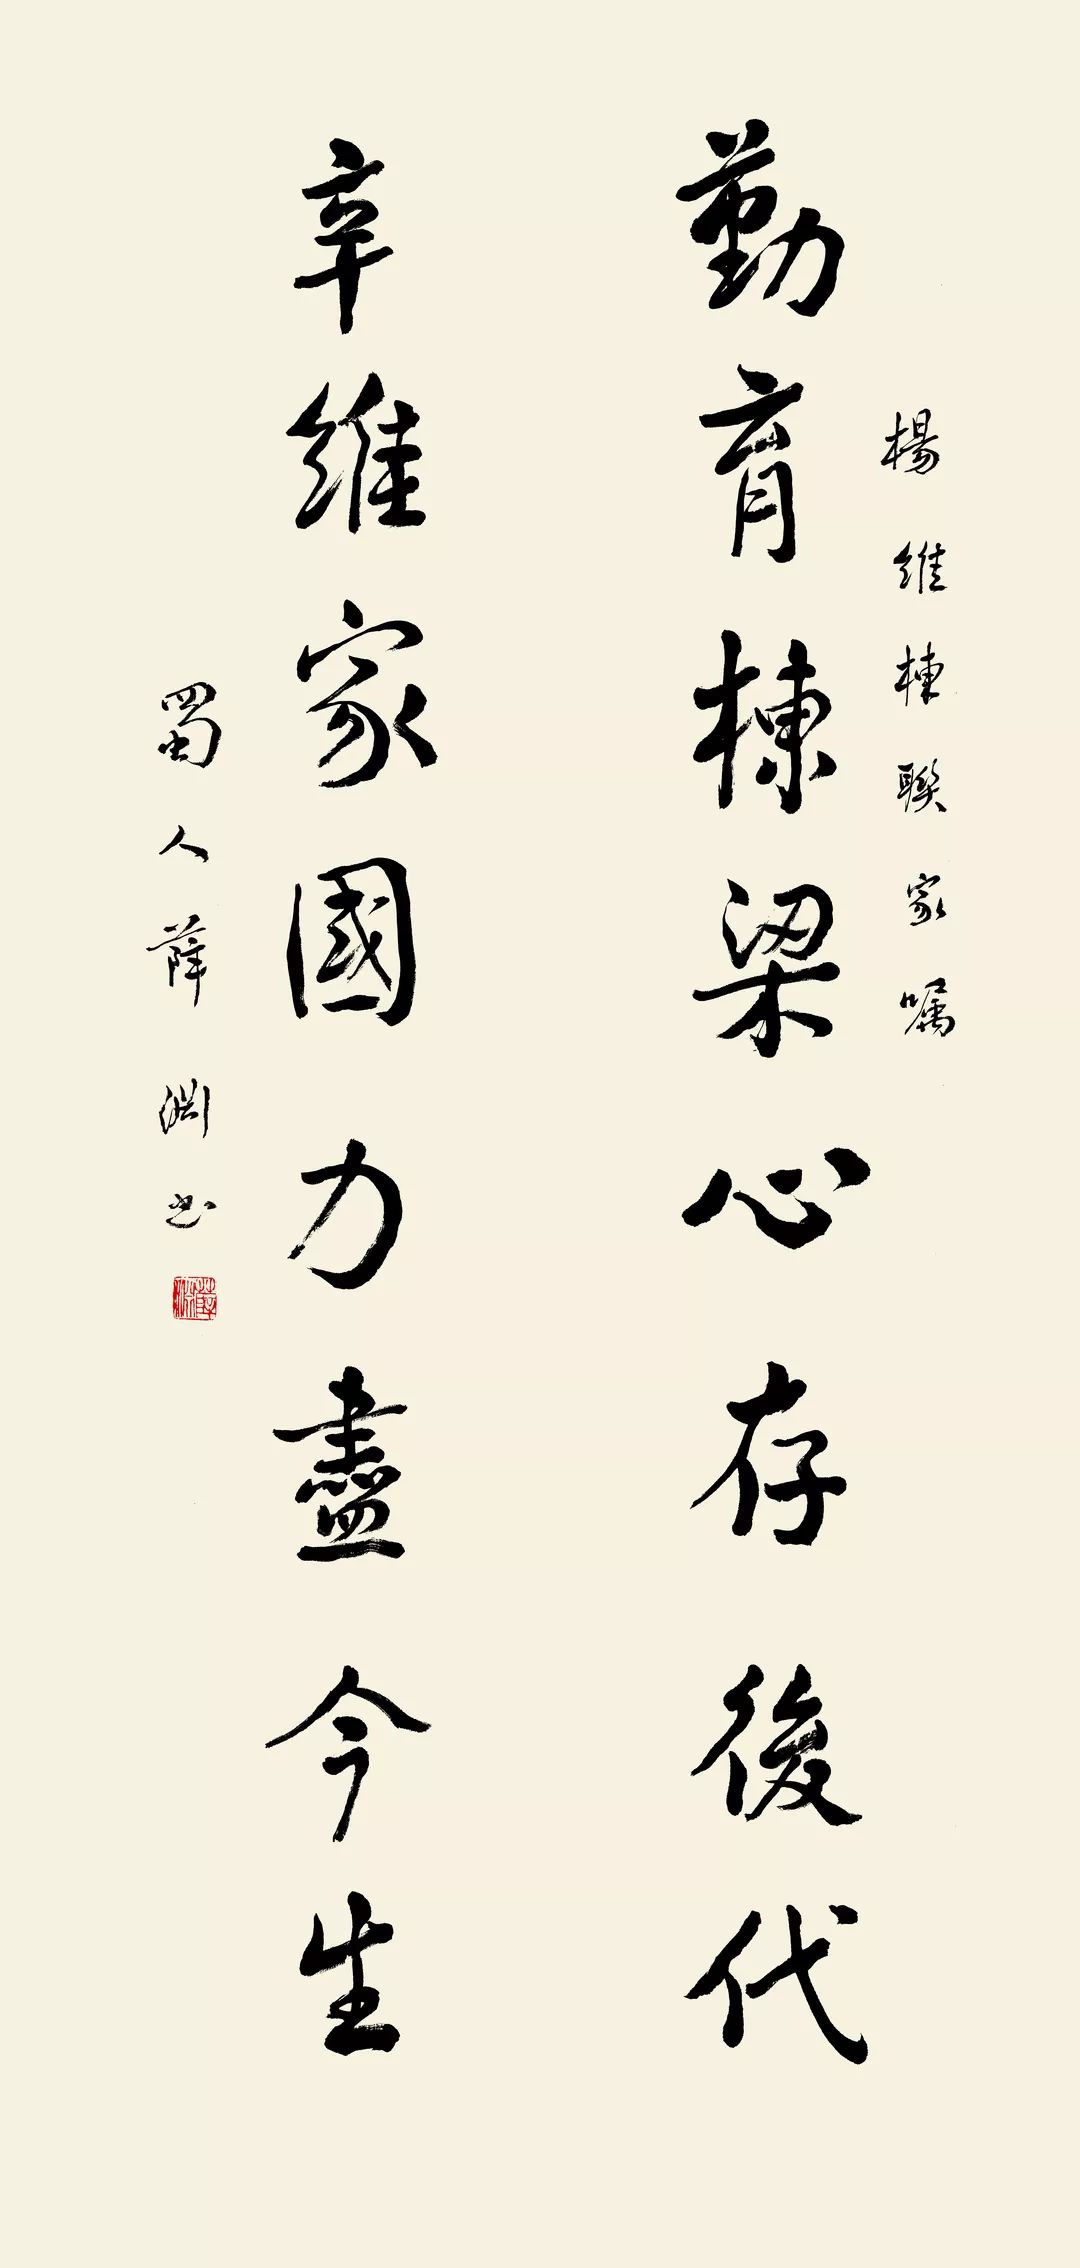 楊維棟聯家嘱
勤育棟梁心存後代
辛維家國力盡今生
蜀人薛淵书